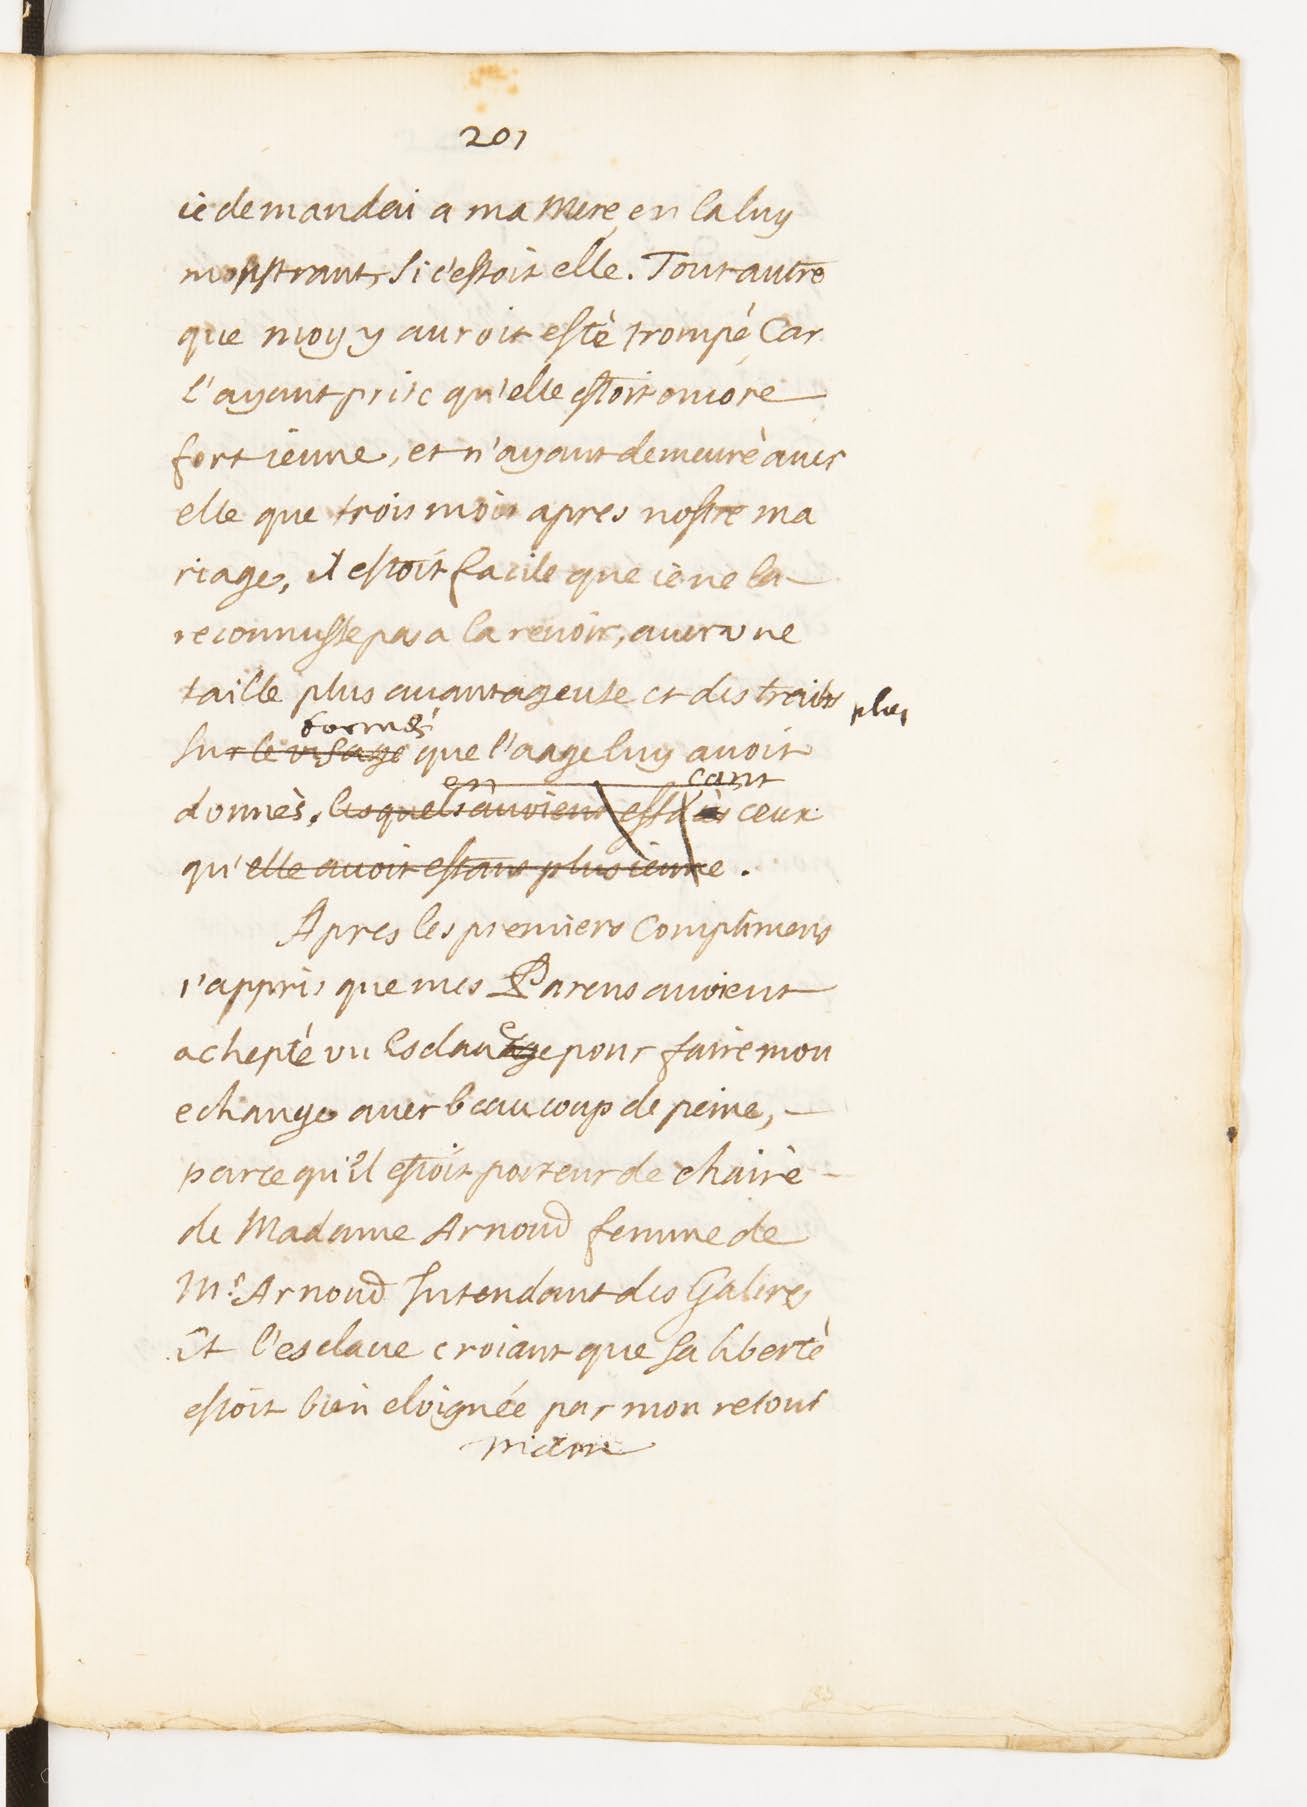 201
ie demandai a ma Mere en la luy
monstrant, si c'estoit elle. Tout autre
que moy y auroit esté trompé Car
l'ayant prise qu'elle estoit encore
fort ieune, et n'ayant demeuré avec
elle que trois mois apres nostre ma
riage, il estoit facile que ie ne la
reconnusse pas a la revoir, avec une
taille plus avantageuse et des traits plus
formés
sur le visage que l'aage luy avoit
en çant
donnés, lesquels avoient ceux
qu'elle avoit estant plus ieune.
Apres les premiers Complimens
i'appris que mes Parens avoient
achepté un Esclave pour faire mon
echange avec beaucoup de peine,
parce qu'il estoit porteur de chaire
de Madame Arnoud femme de
Mr. Arnoud Intendant des Galeres
Et l'esclave croiant que sa liberté
estoit bien eloignée par mon retour